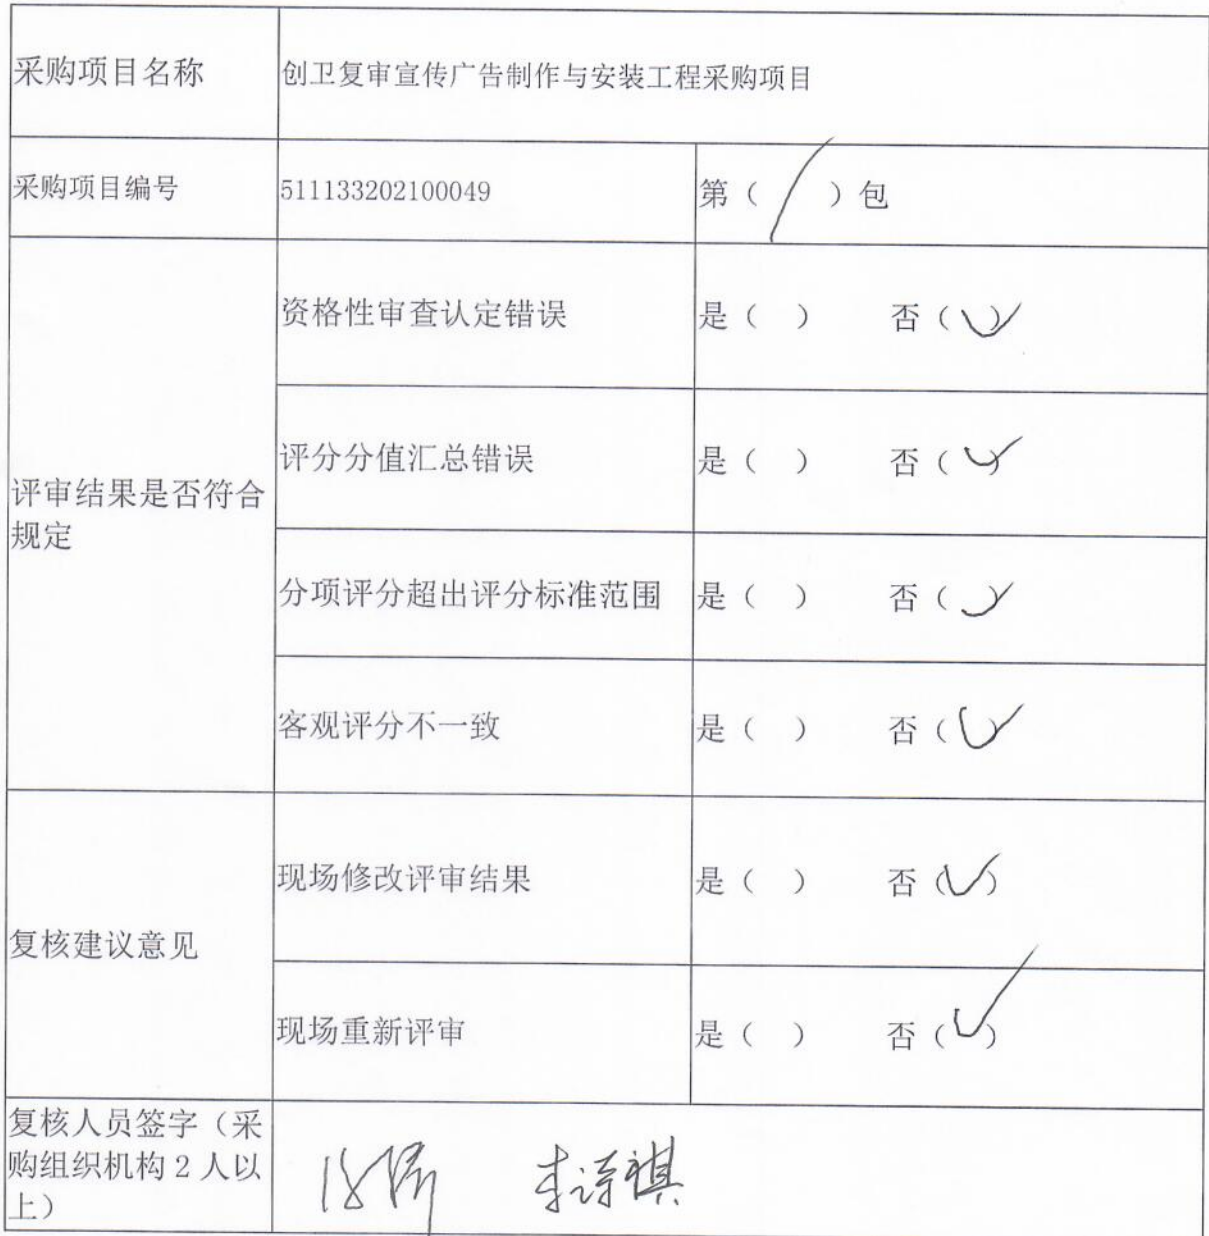 采购项目名称
创卫复审宣传广告制作与安装工程采购项目
采购项目编号
511133202100049
第（ / ）包
评审结果是否符合
规定
资格性审查认定错误
是（ ） 否（✓）
评分分值汇总错误
是（ ） 否（✓）
分项评分超出评分标准范围
是（ ） 否（✓）
客观评分不一致
是（ ） 否（✓）
复核建议意见
现场修改评审结果
是（ ） 否（✓）
现场重新评审
是（ ） 否（✓）
复核人员签字（采
购组织机构 2 人以
上）
李诗祺